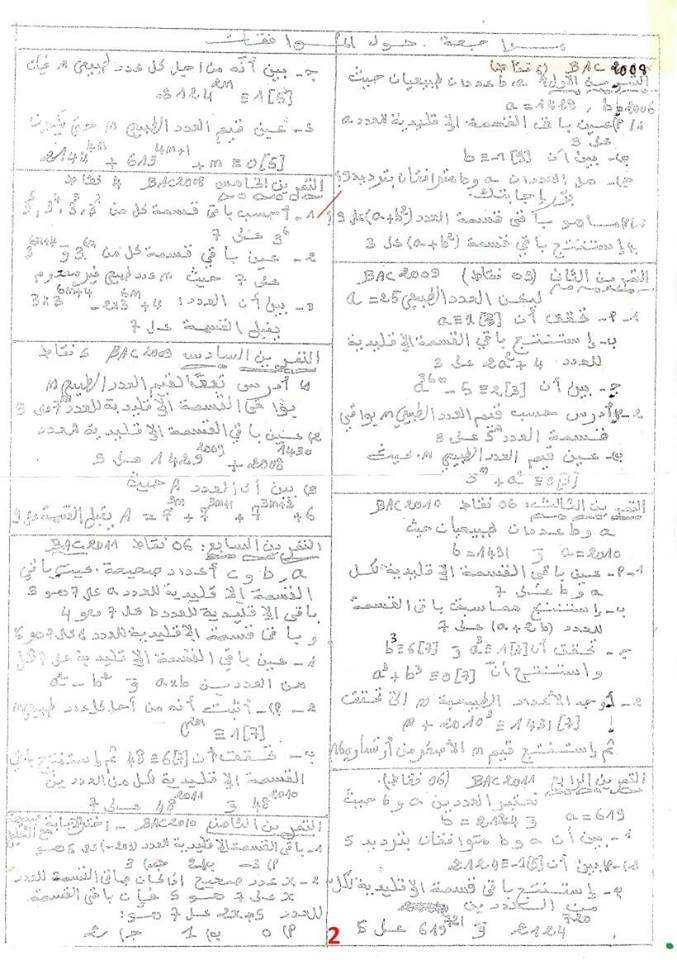 مراجعة حول الموافقات
BAC 2009 (6 نقاط)
التمرين الأول: a، b عددان طبيعيان حيث
a = 1429 ، b = 2006
1/ أ) عين باقي القسمة الإقليدية للعدد a
على 9
ب) بين أن b ≡ -1[9]
ج) هل العددان a و b متوافقان بترديد 9؟
برر إجابتك
2/ أ) ما هو باقي قسمة العدد (a+b²) على 9؟
ب) إستنتج باقي قسمة (a+b²) على 3
التمرين الثاني (09 نقاط) BAC 2009
ليكن العدد الطبيعي a = 25
1- أ- تحقق أن a ≡ 1[3]
ب- إستنتج باقي القسمة الإقليدية
للعدد 2a²+4 على 3
ج- بين أن
- 5 ≡ 2[3]
2- أ) أدرس حسب قيم العدد الطبيعي n بواقي
قسمة العدد 5ⁿ على 3
ب- عين قيم العدد الطبيعي n بحيث
5ⁿ + a² ≡ 0[3]
التمرين الثالث: 06 نقاط BAC 2010
a و b عددان طبيعيان حيث
a = 2010 و b = 1431
1- أ- عين باقي القسمة الإقليدية لكل
a و b على 7
ب- إستنتج مما سبق باقي القسمة
للعدد (a+2b) على 7
ج- تحقق أن a³ ≡ 1[7] و b³ ≡ 6[7]
واستنتج أن a³ + b³ ≡ 0[7]
2- أوجد الأعداد الطبيعية n التي تحقق
n + 2010³ ≡ 1431[7]
ثم إستنتج قيم n الأصغر من أو تساوي 16
التمرين الرابع BAC 2011 (06 نقاط).
نعتبر العددين a و b حيث
a = 619 و b = 2124
1- بين أن a و b متوافقان بترديد 5
2- أ) بين أن 2124 ≡ -1[5]
ب- إستنتج باقي قسمة الإقليدية لكل
من العددين
2124⁷²⁰ و 619⁷²¹ على 5
ج- بين أنه من أجل كل عدد طبيعي n فإن
≡ 1[5]
3- عين قيم العدد الطبيعي n حتى يكون
+ n ≡ 0[5]
التمرين الخامس BAC 2008 4 نقاط
1- أحسب باقي قسمة كل من
3⁶ على 7
2- عين باقي قسمة كل من 3⁶ⁿ و 3⁶ⁿ⁺⁴
على 7 حيث n عدد طبيعي غير معدوم
3- بين أن العدد:
يقبل القسمة على 7
التمرين السادس BAC 2009 6 نقاط
1) أدرس تبعا لقيم العدد الطبيعي n
بواقي القسمة الإقليدية للعدد 7ⁿ على 9
2) عين باقي القسمة الإقليدية للعدد
1429²⁰⁰⁹ + 2008¹⁴³⁰ على 9
3) بين أن العدد A حيث
A = 7³ⁿ + 7³ⁿ⁺¹ + 7³ⁿ⁺² + 6 يقبل القسمة على 9
التمرين السابع: 06 نقاط BAC 2011
a، b و c أعداد صحيحة حيث باقي
القسمة الإقليدية للعدد a على 7 هو 3
باقي الإقليدية للعدد b على 7 هو 4
و باقي قسمة الإقليدية للعدد c على 7 هو 6
1- عين باقي القسمة الإقليدية على 7 لكل
من العددين a×b و a² - b²
2- أ- أثبت أنه من أجل كل عدد طبيعي n
c²ⁿ ≡ 1[7]
ب- تحقق أن 48 ≡ 6[7] ثم إستنتج باقي
القسمة الإقليدية لكل من العددين
48²⁰¹⁰ و 48²⁰¹¹ على 7
التمرين الثامن BAC 2010 - اختر الإجابة
1- باقي القسمة الإقليدية للعدد (-203) على 5 هو
أ) -3 ب) 2 ج) 3
2- x عدد صحيح إذا كان باقي القسمة للعدد
x على 7 هو 5 فإن باقي القسمة
للعدد 2x+5 على 7 هو:
أ) 0 ب) 1 ج) 2
2